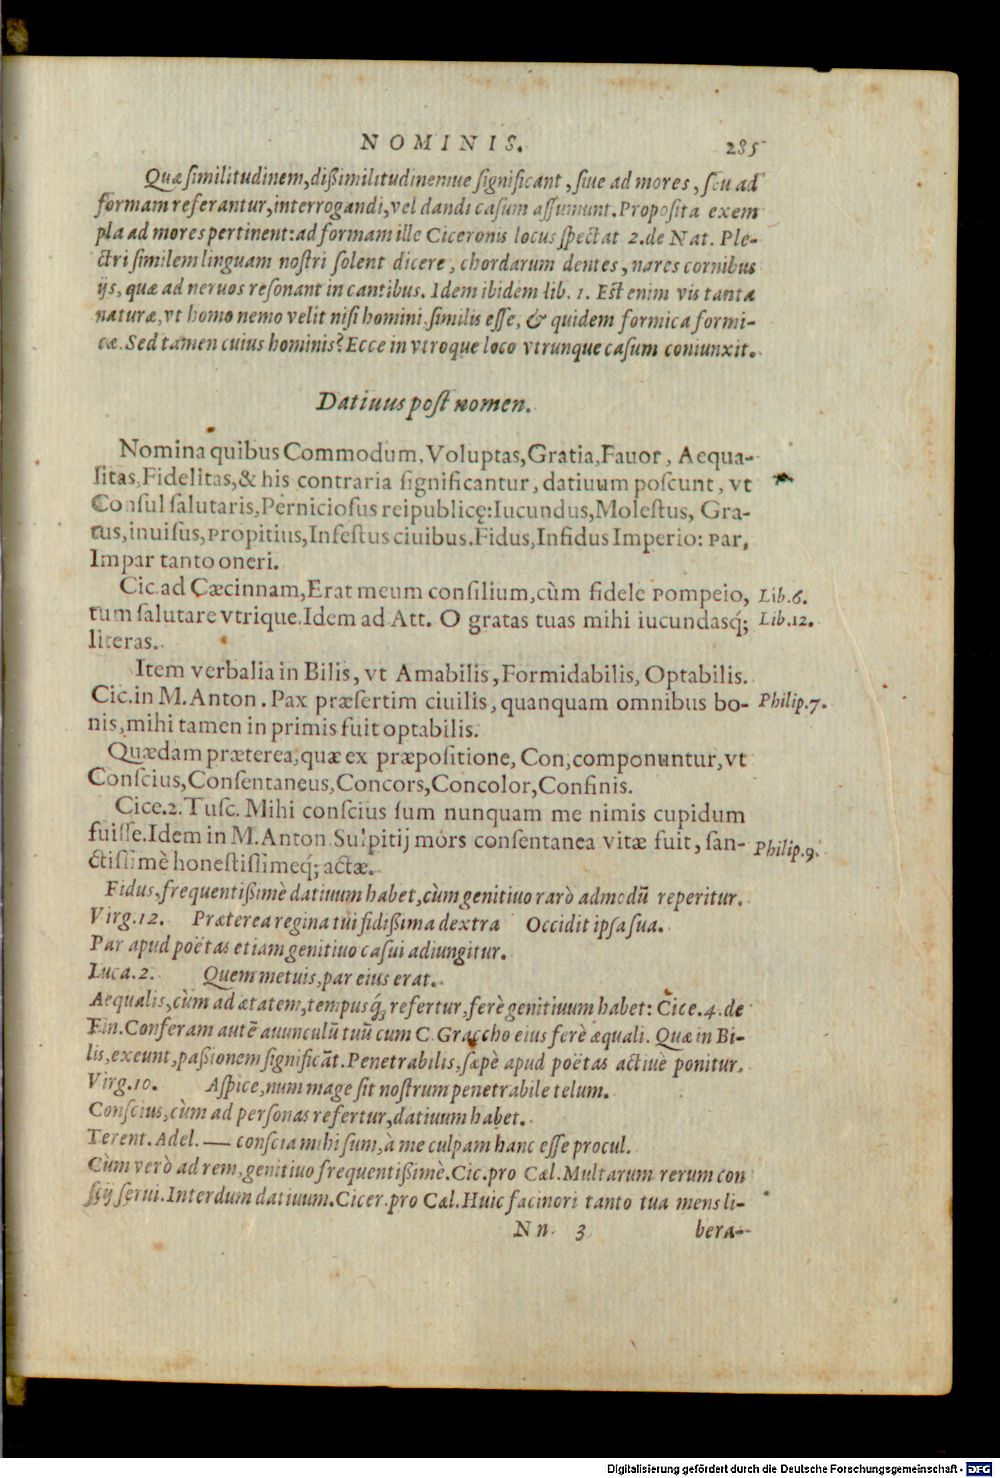 NOMINIS. 285
Quæ similitudinem, dißimilitudinemue significant, siue ad mores, seu ad
formam referantur, interrogandi, vel dandi casum assumunt. Proposita exem
pla ad mores pertinent: ad formam ille Ciceronis locus spectat 2. de Nat. Ple-
ctri similem linguam nostri solent dicere, chordarum dentes, nares cornibus
ijs, quæ ad neruos resonant in cantibus. Idem ibidem lib. 1. Est enim vis tanta
naturæ, vt homo nemo velit nisi homini similis esse, & quidem formica formi-
cæ. Sed tamen cuius hominis? Ecce in vtroque loco vtrunque casum coniunxit.
Datiuus post nomen.
Nomina quibus Commodum, Voluptas, Gratia, Fauor, Aequa-
litas, Fidelitas, & his contraria significantur, datiuum poscunt, vt
Consul salutaris, Perniciosus reipublicę: Iucundus, Molestus, Gra-
tus, inuisus, Propitius, Infestus ciuibus. Fidus, Infidus Imperio: Par,
Impar tanto oneri.
Cic. ad Cæcinnam, Erat meum consilium, cùm fidele Pompeio, Lib. 6.
tum salutare vtrique. Idem ad Att. O gratas tuas mihi iucundasq́; Lib. 12.
literas.
Item verbalia in Bilis, vt Amabilis, Formidabilis, Optabilis.
Cic. in M. Anton. Pax præsertim ciuilis, quanquam omnibus bo- Philip. 7.
nis, mihi tamen in primis fuit optabilis.
Quædam præterea, quæ ex præpositione, Con, componuntur, vt
Conscius, Consentaneus, Concors, Concolor, Confinis.
Cice. 2. Tusc. Mihi conscius sum nunquam me nimis cupidum
fuisse. Idem in M. Anton. Sulpitij mors consentanea vitæ fuit, san- Philip. 9.
ctissimè honestissimeq́; actæ.
Fidus, frequentißimè datiuum habet, cùm genitiuo rarò admodū reperitur.
Virg. 12. Præterea regina tui fidißima dextra Occidit ipsa sua.
Par apud poëtas etiam genitiuo casui adiungitur.
Luca. 2. Quem metuis, par eius erat.
Aequalis, cùm ad ætatem, tempusq́; refertur, ferè genitiuum habet: Cice. 4. de
Fin. Conferam autē auunculū tuū cum C. Graccho eius ferè æquali. Quæ in Bi-
lis, exeunt, paßionem significāt. Penetrabilis, sæpè apud poëtas actiuè ponitur.
Virg. 10. Aspice, num mage sit nostrum penetrabile telum.
Conscius, cùm ad personas refertur, datiuum habet.
Terent. Adel. — conscia mihi sum, à me culpam hanc esse procul.
Cùm verò ad rem, genitiuo frequentißimè. Cic. pro Cæl. Multarum rerum con
scij serui. Interdum datiuum. Cicer. pro Cæl. Huic facinori tanto tua mens li-
Nn 3 bera-
Digitalisierung gefördert durch die Deutsche Forschungsgemeinschaft - DFG